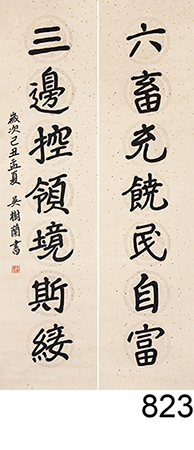 六畜充饒民自富
三邊控領境斯綏
歲次己丑孟夏 吳樹蘭書
823